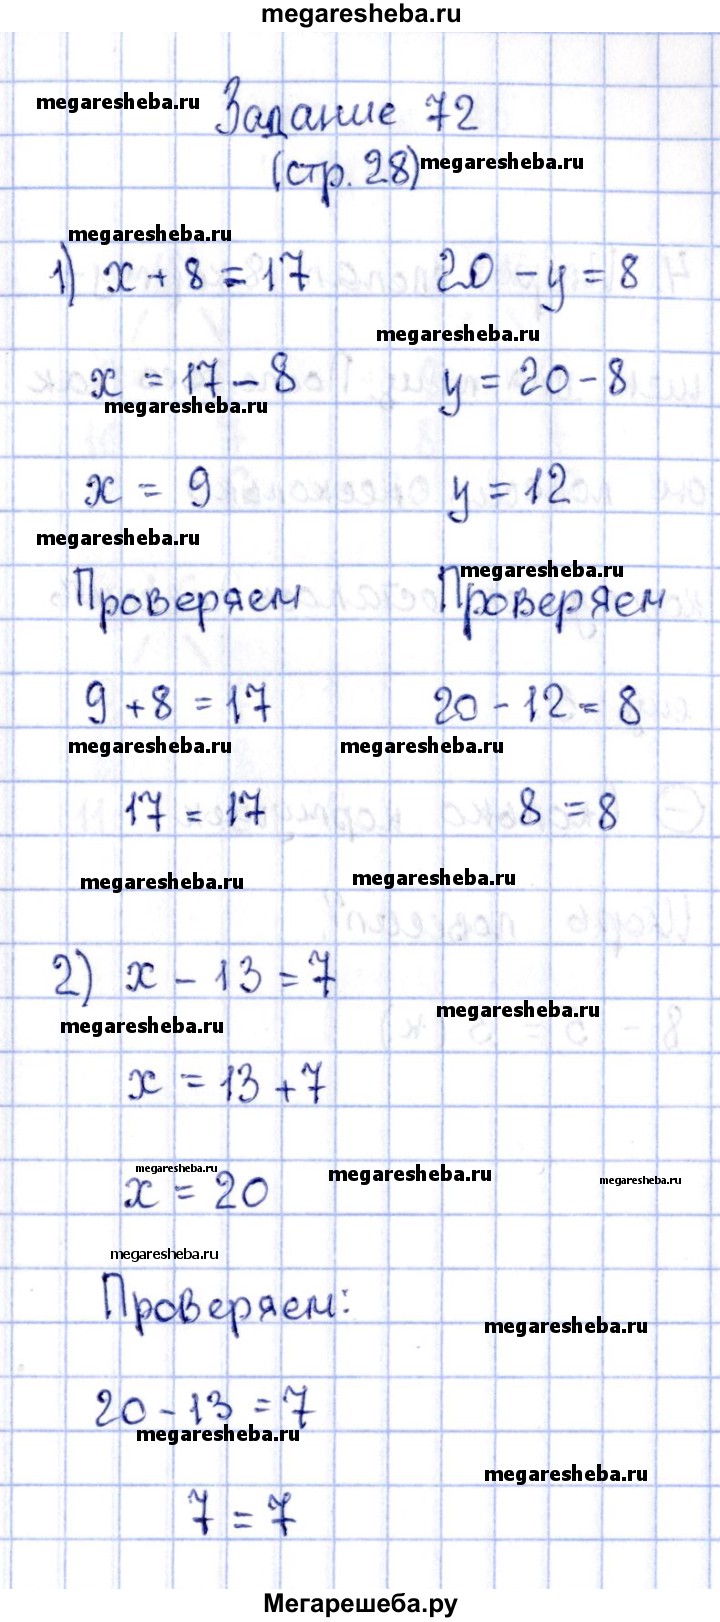 megaresheba.ru
Задание 72
megaresheba.ru
(стр. 28)
megaresheba.ru
megaresheba.ru
1) x + 8 = 17
20 - y = 8
megaresheba.ru
x = 17 - 8
y = 20 - 8
megaresheba.ru
x = 9
y = 12
megaresheba.ru
megaresheba.ru
Проверяем
Проверяем
9 + 8 = 17
20 - 12 = 8
megaresheba.ru
megaresheba.ru
17 = 17
8 = 8
megaresheba.ru
megaresheba.ru
2) x - 13 = 7
megaresheba.ru
megaresheba.ru
x = 13 + 7
megaresheba.ru
megaresheba.ru
megaresheba.ru
x = 20
megaresheba.ru
Проверяем:
megaresheba.ru
20 - 13 = 7
megaresheba.ru
megaresheba.ru
7 = 7
Мегарешеба.ру